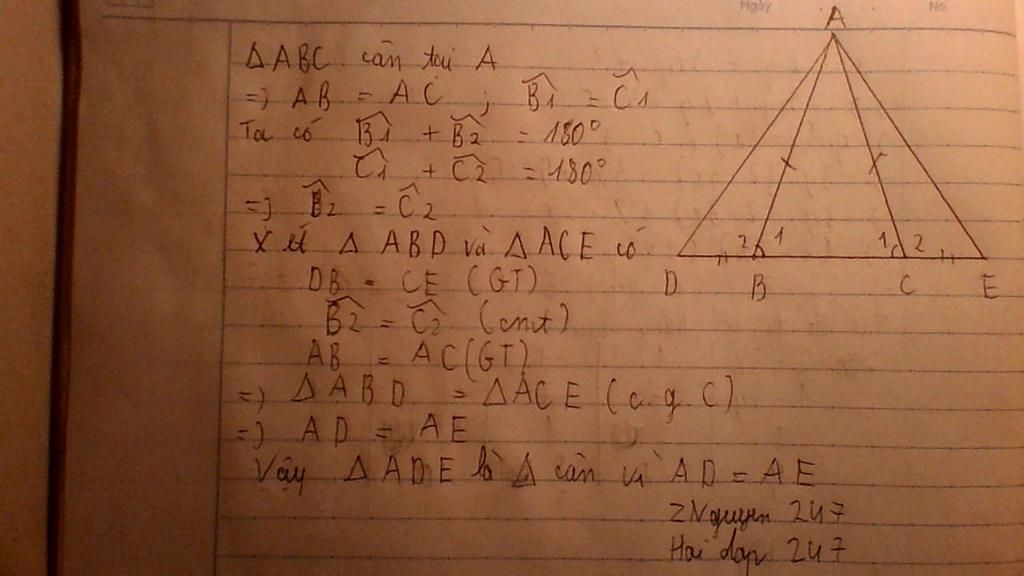 Ngày
No.
Δ ABC cân tại A
=) AB = AC ; B̂1 = Ĉ1
Ta có B̂1 + B̂2 = 180°
Ĉ1 + Ĉ2 = 180°
=) B̂2 = Ĉ2
Xét Δ ABD và Δ ACE có
DB = CE (GT)
B̂2 = Ĉ2 (cmt)
AB = AC (GT)
=) Δ ABD = Δ ACE (c. g. C)
=) AD = AE
Vậy Δ ADE là Δ cân vì AD = AE
ZNguyen 247
Hoi dap 247
A
2 1 1 2
D B C E